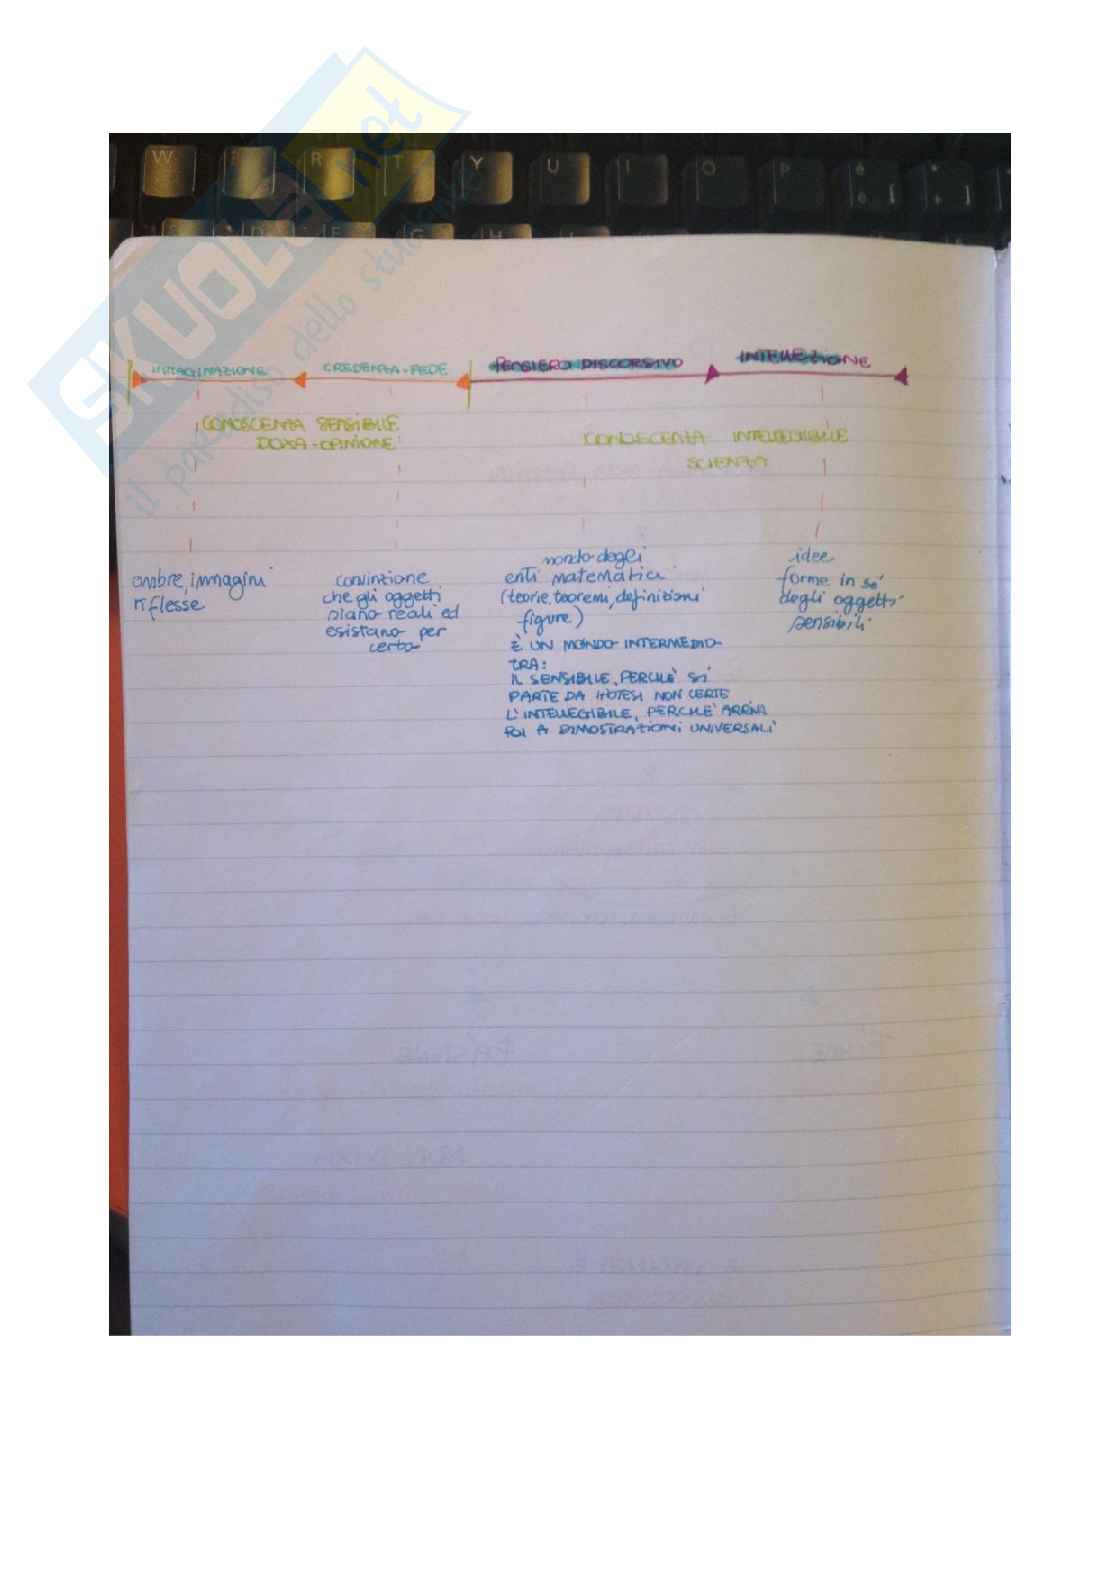 SKUOLA.net
il paradiso dello studente
W E R T Y U I O P è
S D F G H
IMMAGINAZIONE CREDENZA-FEDE PENSIERO DISCORSIVO INTELLEZIONE
CONOSCENZA SENSIBILE
DOXA-OPINIONE
CONOSCENZA INTELLEGIBILE
SCIENZA
ombre, immagini
riflesse
convinzione
che gli oggetti
siano reali ed
esistano per
certo
mondo degli
enti matematici
(teorie, teoremi, definizioni
figure)
È UN MONDO INTERMEDIO
TRA:
IL SENSIBILE, PERCHÈ SI
PARTE DA IPOTESI NON CERTE
L'INTELLEGIBILE, PERCHÈ ARRIVA
POI A DIMOSTRAZIONI UNIVERSALI
idee
forme in sé
degli oggetti
sensibili